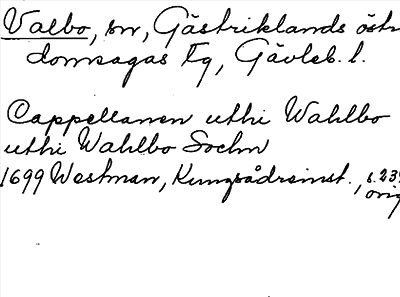 Valbo, sn, Gästriklands östr
domsagas Tg, Gävleb. l.
Cappellanen uthi Wahlbo
uthi Wahlbo Sochn
1699 Westman, Kungsådreinst., s. 239
orig